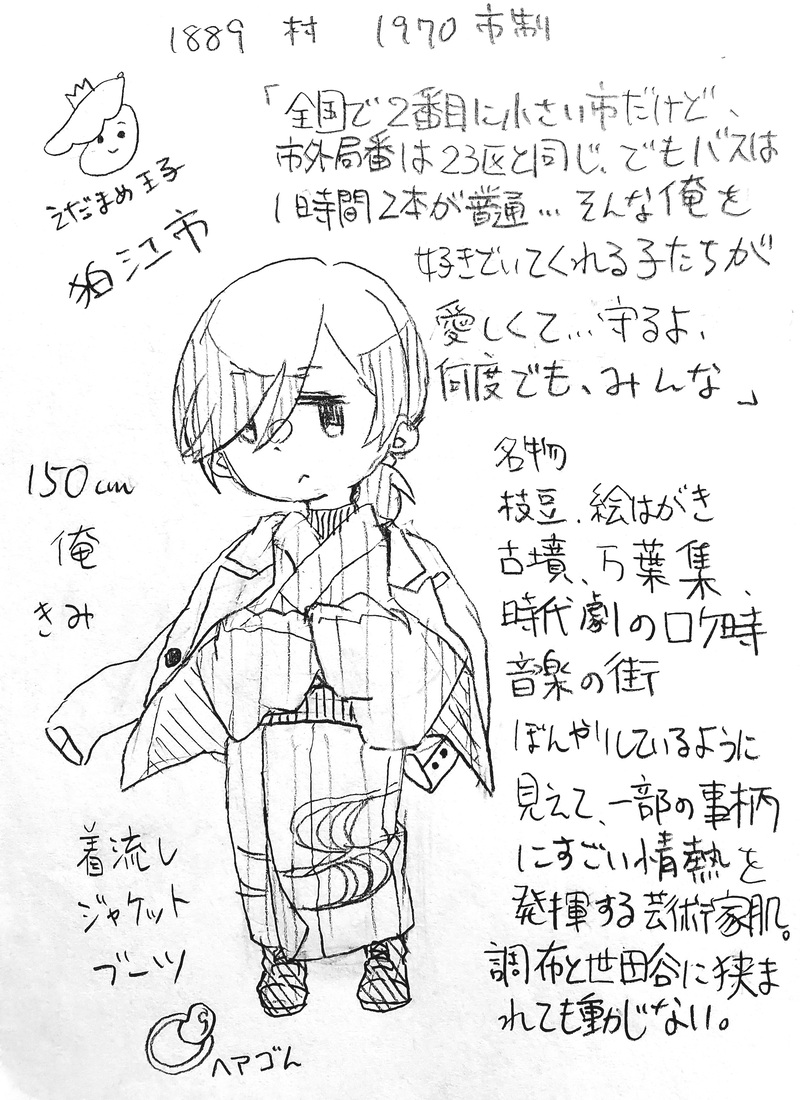 1889 村 1970 市制
えだまめ王子
狛江市
「全国で2番目に小さい市だけど、
市外局番は23区と同じ、でもバスは
1時間2本が普通…そんな俺を
好きでいてくれる子たちが
愛しくて…守るよ、
何度でも、みんな」
150cm
俺
きみ
名物
枝豆、絵はがき
古墳、万葉集、
時代劇のロケ時
音楽の街
ぼんやりしているように
見えて、一部の事柄
にすごい情熱を
発揮する芸術家肌。
調布と世田谷に狭ま
れても動じない。
着流し
ジャケット
ブーツ
ヘアゴム